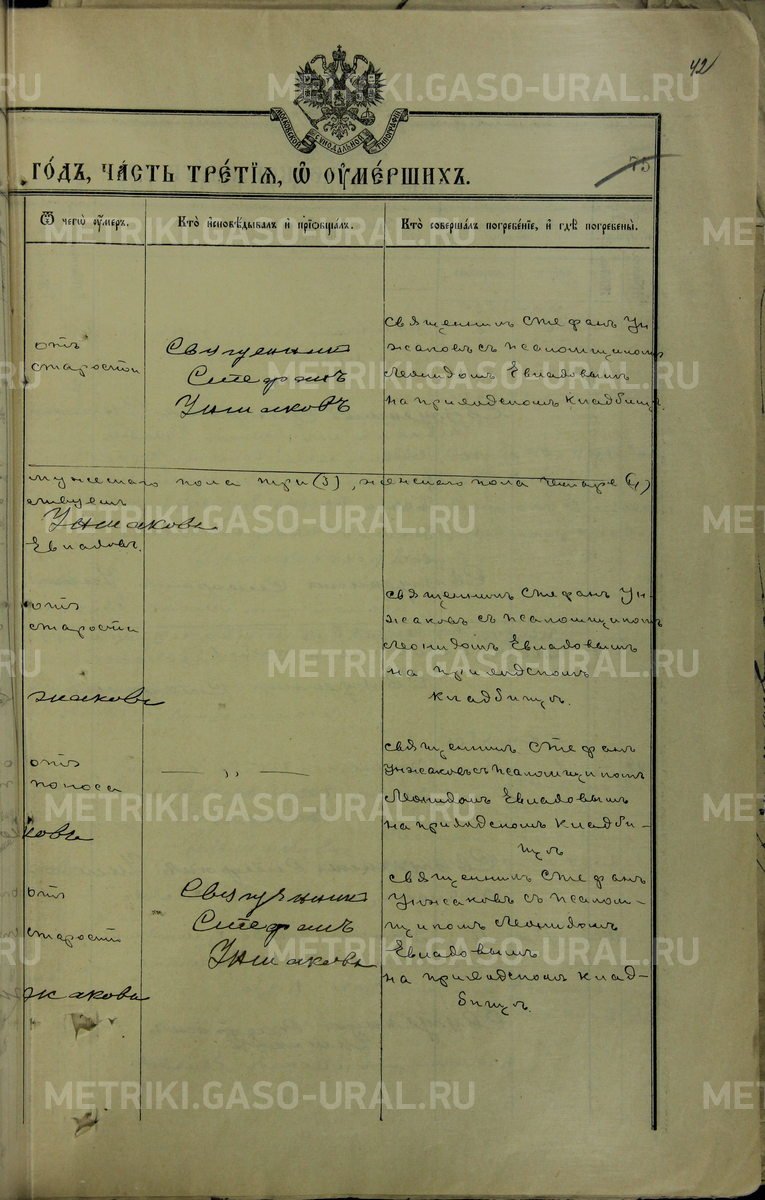 42
МОСКОВСКОЙ СѴНОДАЛЬНОЙ ТИПОГРАФІИ
ГО́ДЪ, ЧА́СТЬ ТРЕ́ТІѦ, Ѡ҆ ОУ҆МЕ́РШИХЪ.
75
Ѿ чегѡ̀ оу҆́меръ.
Кто̀ и҆сповѣ́дывалъ и҆ прїѡбща́лъ.
Кто̀ соверша́лъ погребе́нїе, и҆ гдѣ̀ погребены̀.
отъ
старости
Священникъ
Стефанъ
Унжаковъ
священникъ Стефанъ Ун-
жаковъ съ псаломщикомъ
Леонидомъ Евладовымъ
на приходскомъ кладбищѣ
мужескаго пола три (3), женскаго пола четыре (4)
Унжаковъ
Евладовъ.
отъ
старости
священникъ Стефанъ Ун-
жаковъ съ псаломщикомъ
Леонидомъ Евладовымъ
на приходскомъ
кладбищѣ.
жаковъ
отъ
поноса
— „ —
священникъ Стефанъ
Унжаковъ съ псаломщикомъ
Леонидомъ Евладовымъ
на приходскомъ кладби-
щѣ
ковъ
отъ
старости
Священникъ
Стефанъ
Унжаковъ
священникъ Стефанъ
Унжаковъ съ псалом-
щикомъ Леонидомъ
Евладовымъ
на приходскомъ клад-
бищѣ.
жаковъ
METRIKI.GASO-URAL.RU